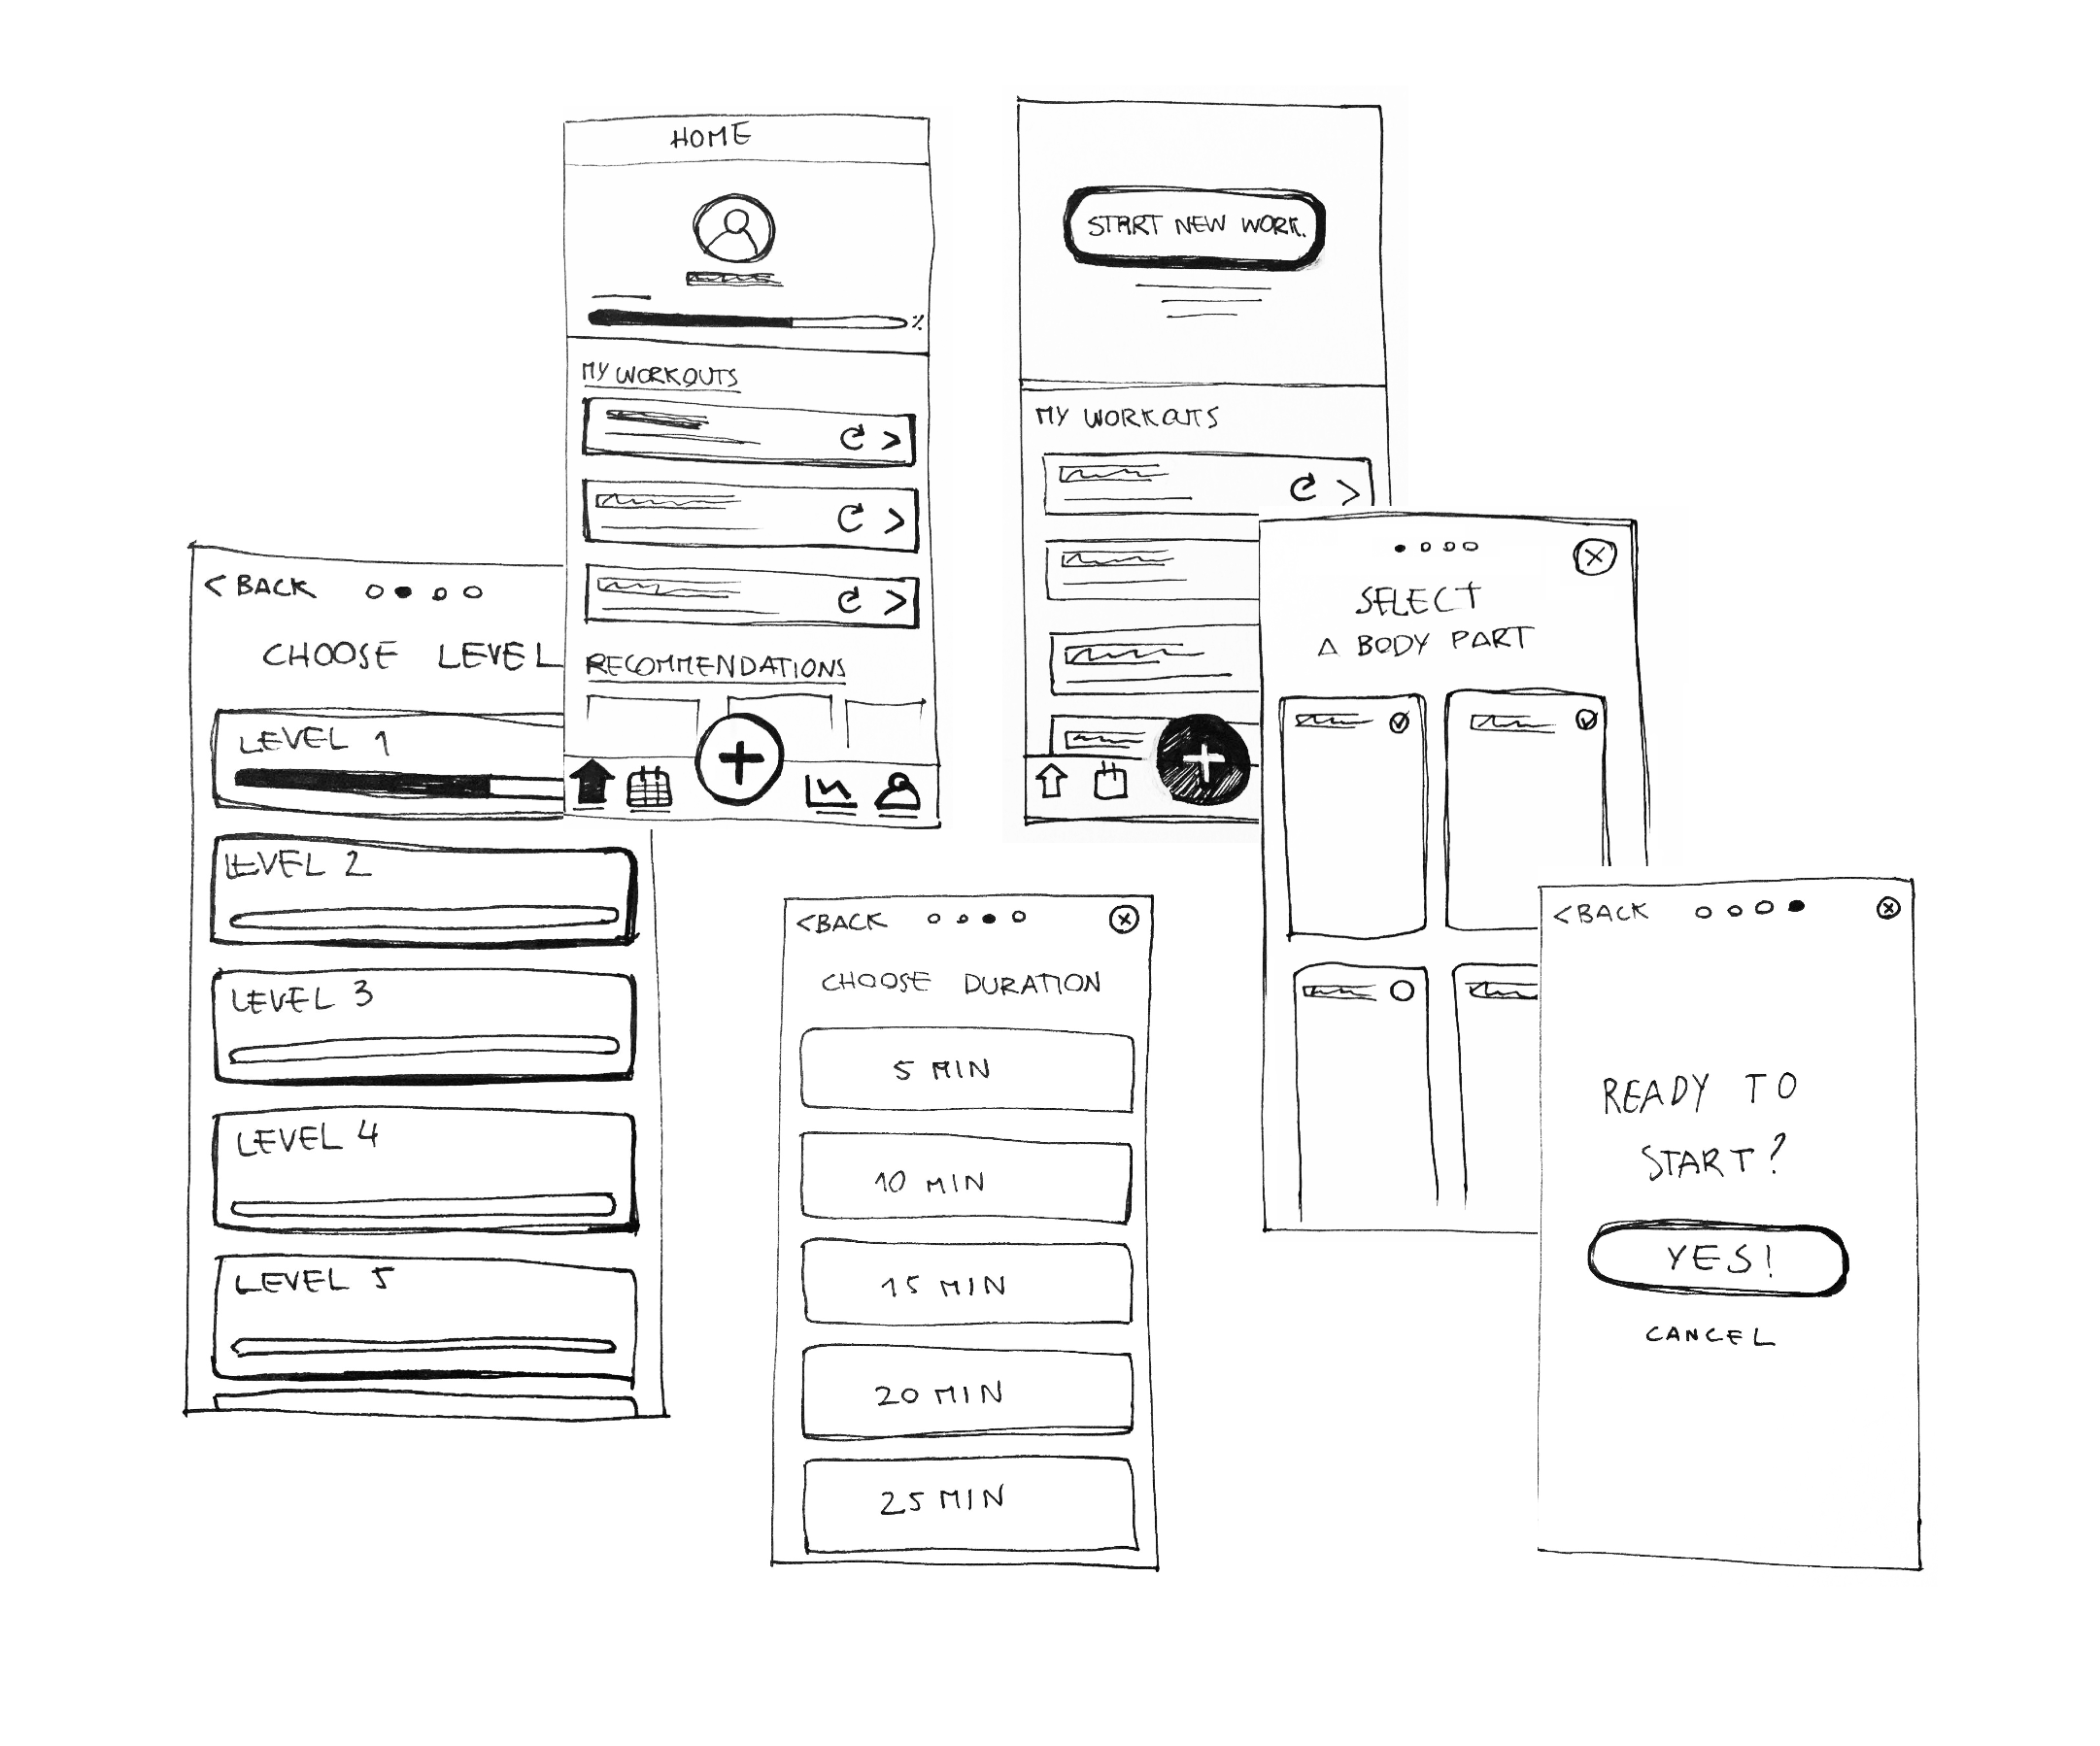 HOME
MY WORKOUTS
RECOMMENDATIONS
START NEW WORK.
MY WORKOUTS
< BACK
CHOOSE LEVEL
LEVEL 1
LEVEL 2
LEVEL 3
LEVEL 4
LEVEL 5
SELECT
A BODY PART
<BACK
CHOOSE DURATION
5 MIN
10 MIN
15 MIN
20 MIN
25 MIN
<BACK
READY TO
START?
YES!
CANCEL